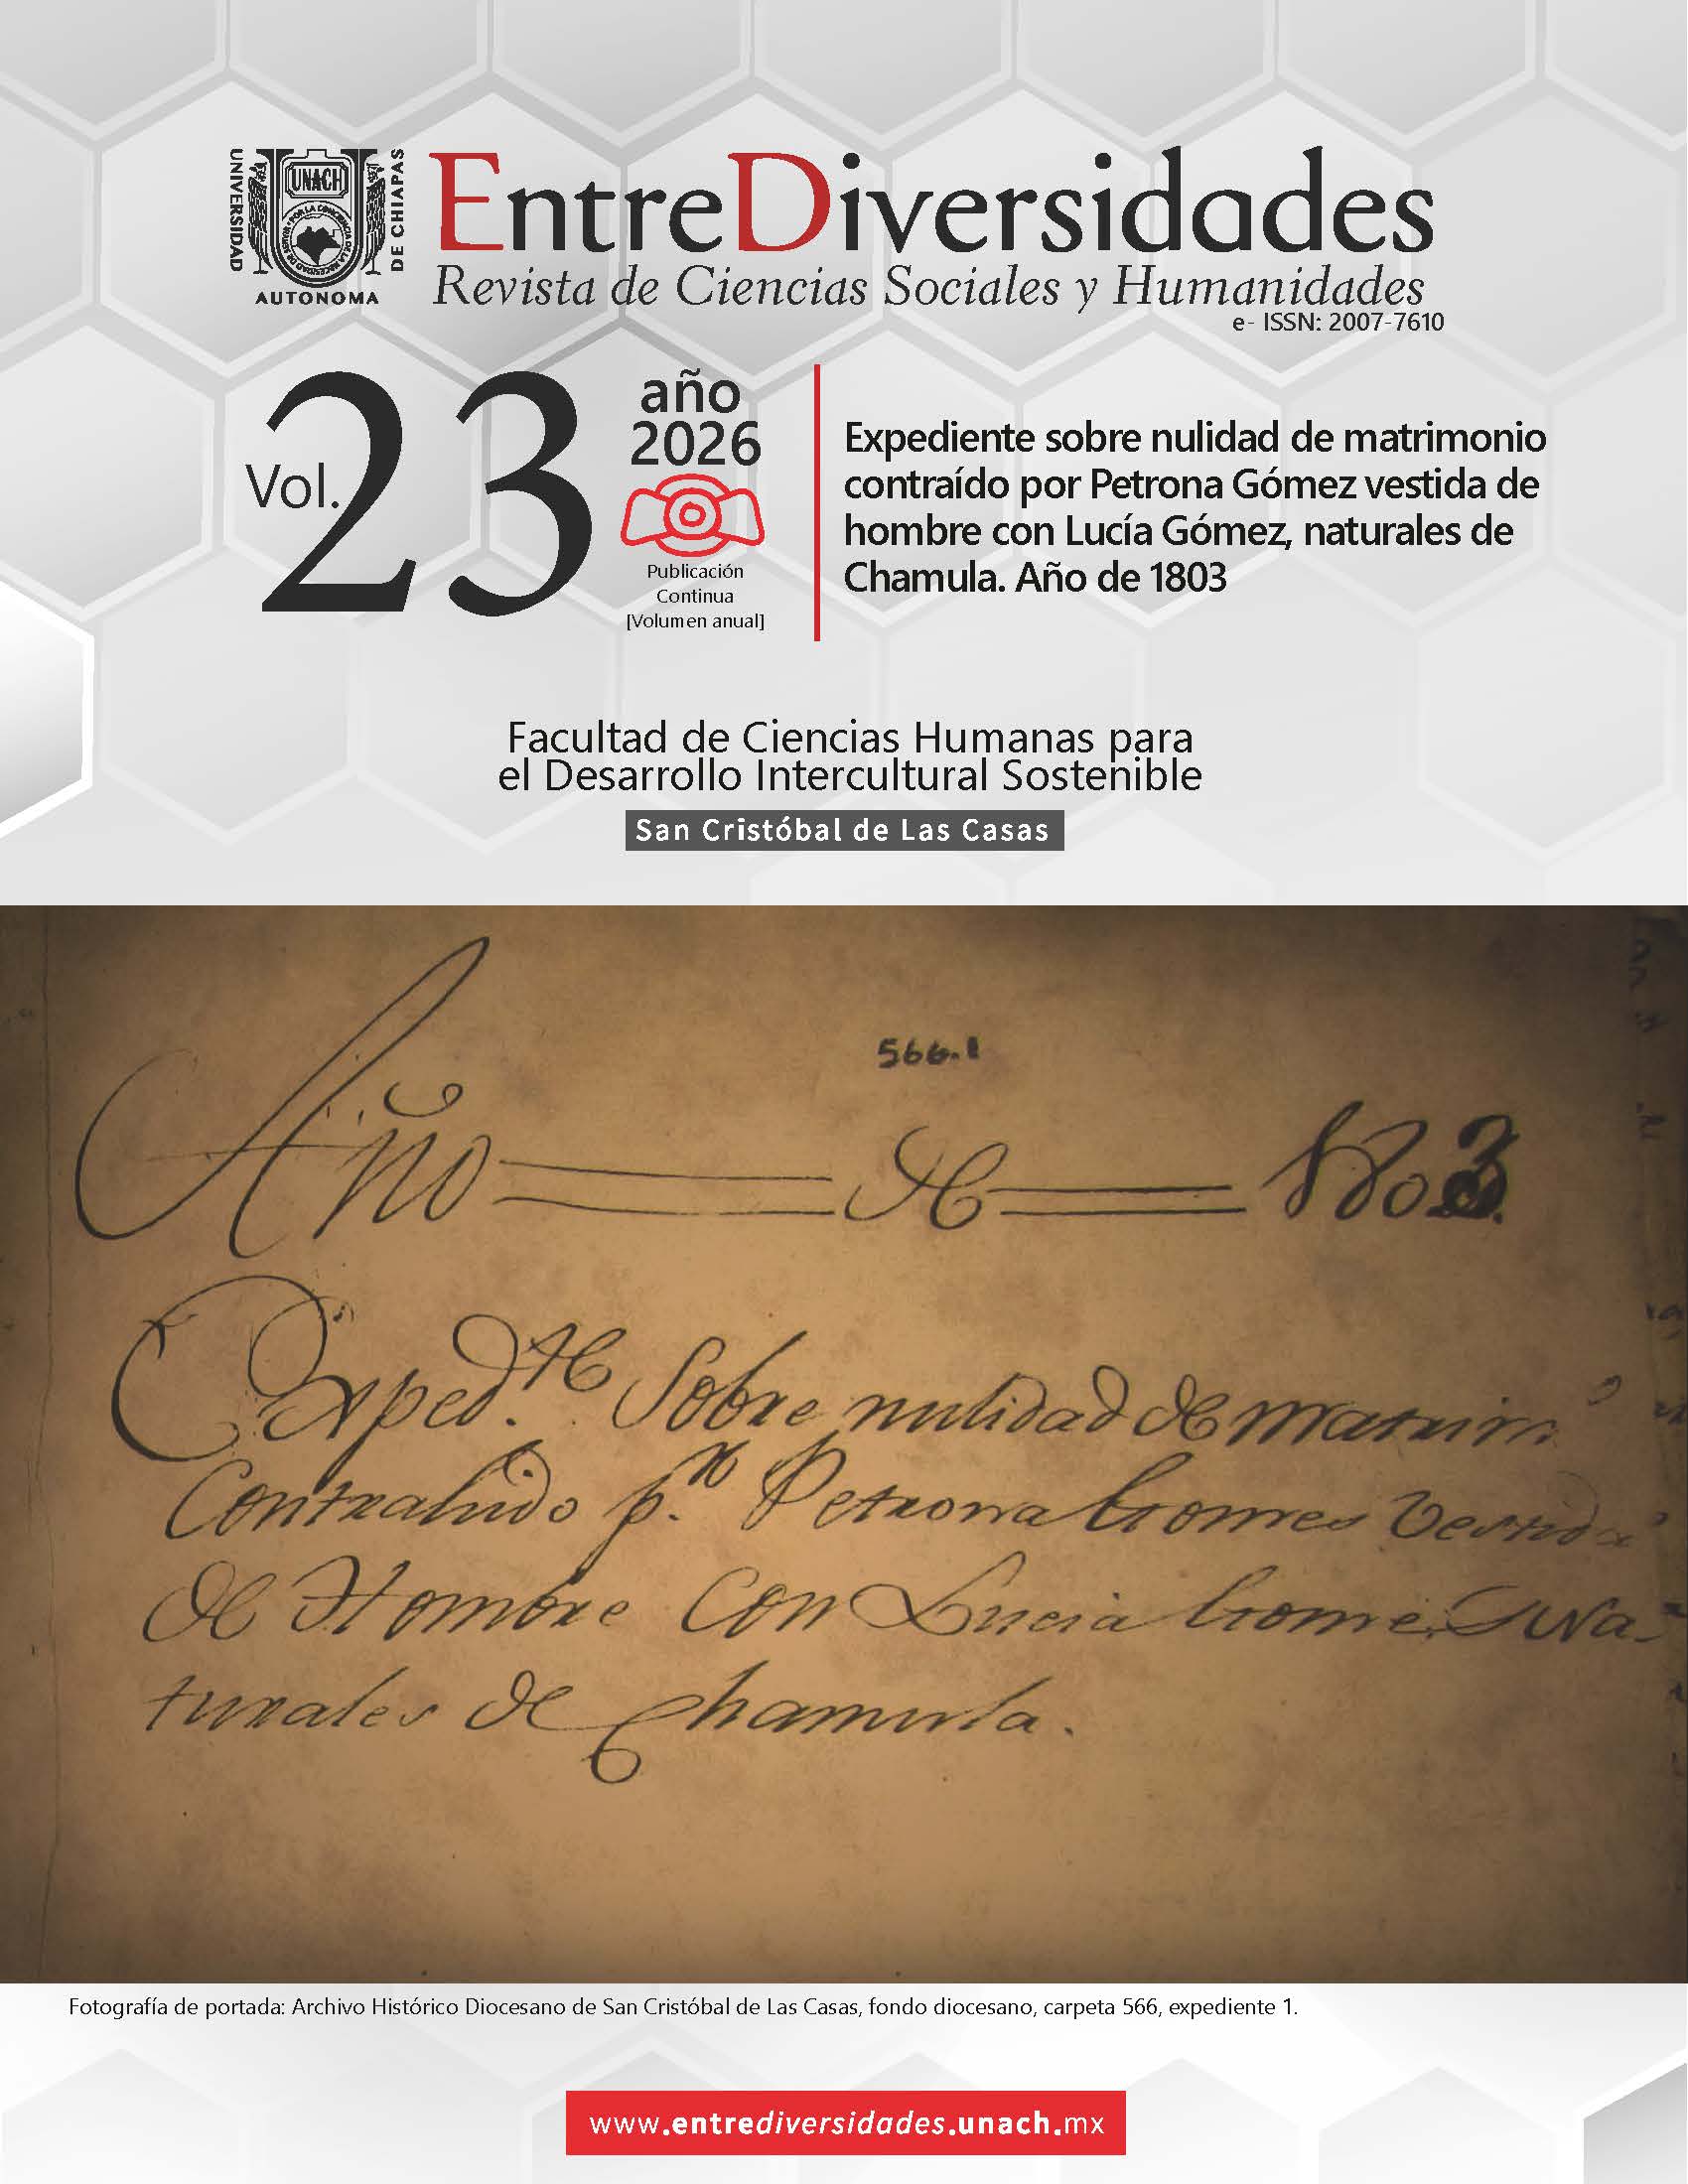 UNIVERSIDAD
UNACH
AUTONOMA
DE CHIAPAS
EntreDiversidades
Revista de Ciencias Sociales y Humanidades
e- ISSN: 2007-7610
Vol. 23
año
2026
Publicación
Continua
[Volumen anual]
Expediente sobre nulidad de matrimonio
contraído por Petrona Gómez vestida de
hombre con Lucía Gómez, naturales de
Chamula. Año de 1803
Facultad de Ciencias Humanas para
el Desarrollo Intercultural Sostenible
San Cristóbal de Las Casas
566.1
Año de 1803.
Exped.te Sobre nulidad de matrim.o
Contrahido p.r Petrona Gomes Vestida
de Hombre Con Lucia Gomes Na-
turales de Chamula.
Fotografía de portada: Archivo Histórico Diocesano de San Cristóbal de Las Casas, fondo diocesano, carpeta 566, expediente 1.
www.entrediversidades.unach.mx